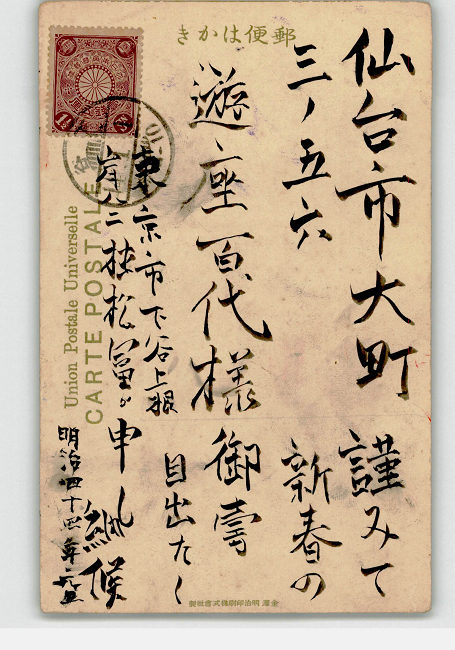 郵便はかき
仙台市大町
三ノ五六
遊座百代様
東京市下谷上根
岸八二
謹みて
新春の
御壽
目出たく
申し納候
明治四十四年
Union Postale Universelle
CARTE POSTALE
明治印刷株式會社製